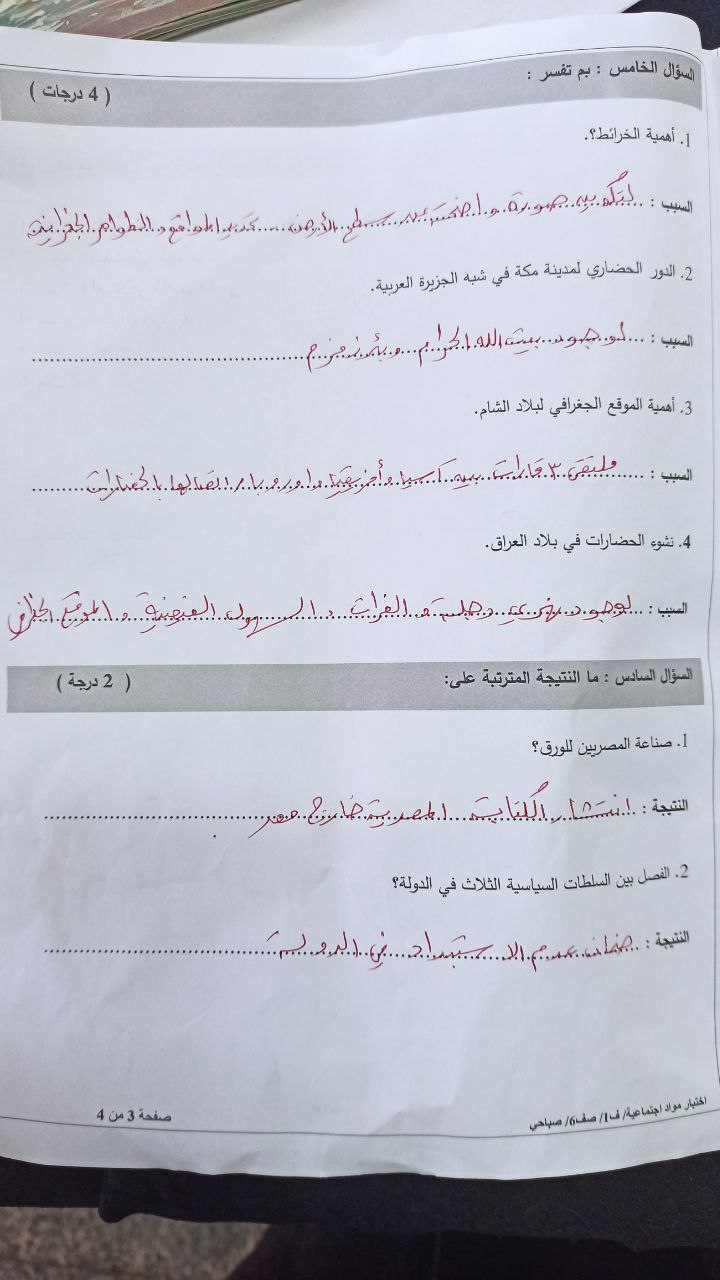 السؤال الخامس : بم تفسر :
( 4 درجات )
1. أهمية الخرائط؟.
السبب : لتكوين صورة واضحة عن سطح الأرض تحديد المواقع والظواهر الجغرافية
2. الدور الحضاري لمدينة مكة في شبه الجزيرة العربية.
السبب : لوجود بيت الله الحرام وبئر زمزم
3. أهمية الموقع الجغرافي لبلاد الشام.
السبب : ملتقى ٣ قارات بين آسيا وأفريقيا وأوروبا اتصالها بالحضارات
4. نشوء الحضارات في بلاد العراق.
السبب : لوجود نهري دجلة و الفرات و السهول الفيضية و الموقع الجغرافي
السؤال السادس : ما النتيجة المترتبة على:
( 2 درجة )
1. صناعة المصريين للورق؟
النتيجة : انتشار الكتابة المصرية خارج مصر
2. الفصل بين السلطات السياسية الثلاث في الدولة؟
النتيجة : ضمان عدم الاستبداد في الدولة
اختبار مواد اجتماعية/ ف1/ صف6/ صباحي
صفحة 3 من 4